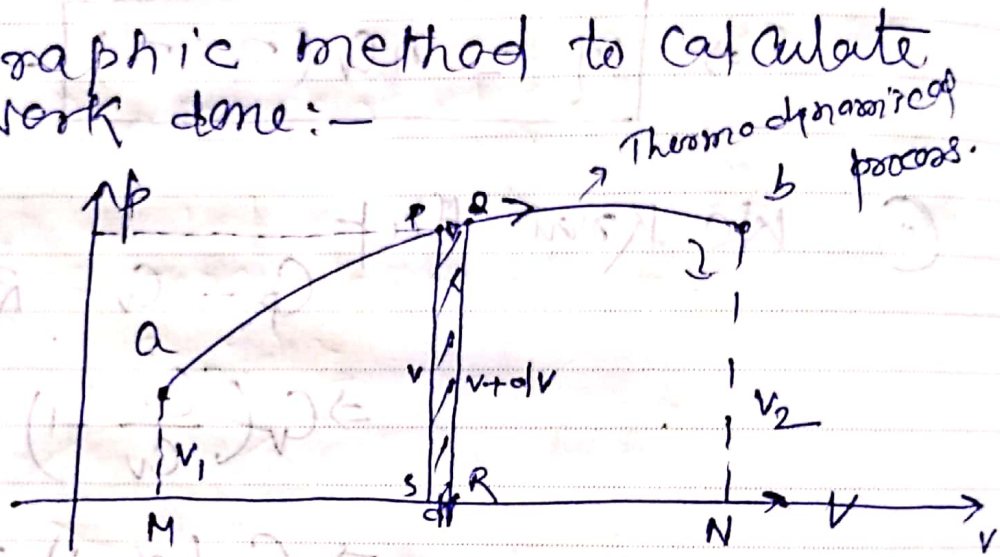 raphic method to calculate
work done:-
Thermodynamical
process.
p
P Q
b
a
2
V V+dV
V₁
V₂
S R
dV
M N
V
V